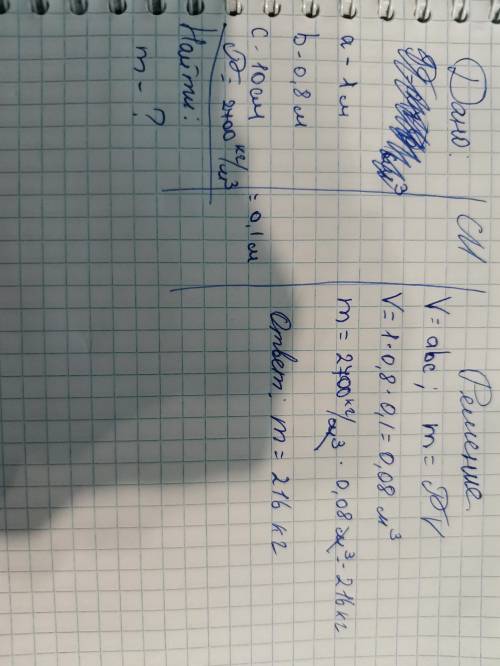 Дано:
a - 1 м
b - 0,8 м
c - 10 см
ρ = 2700 кг/м³
Найти:
m - ?
СИ
= 0,1 м
Решение
V = abc; m = ρV
V = 1 · 0,8 · 0,1 = 0,08 м³
m = 2700 кг/м³ · 0,08 м³ = 216 кг
Ответ: m = 216 кг